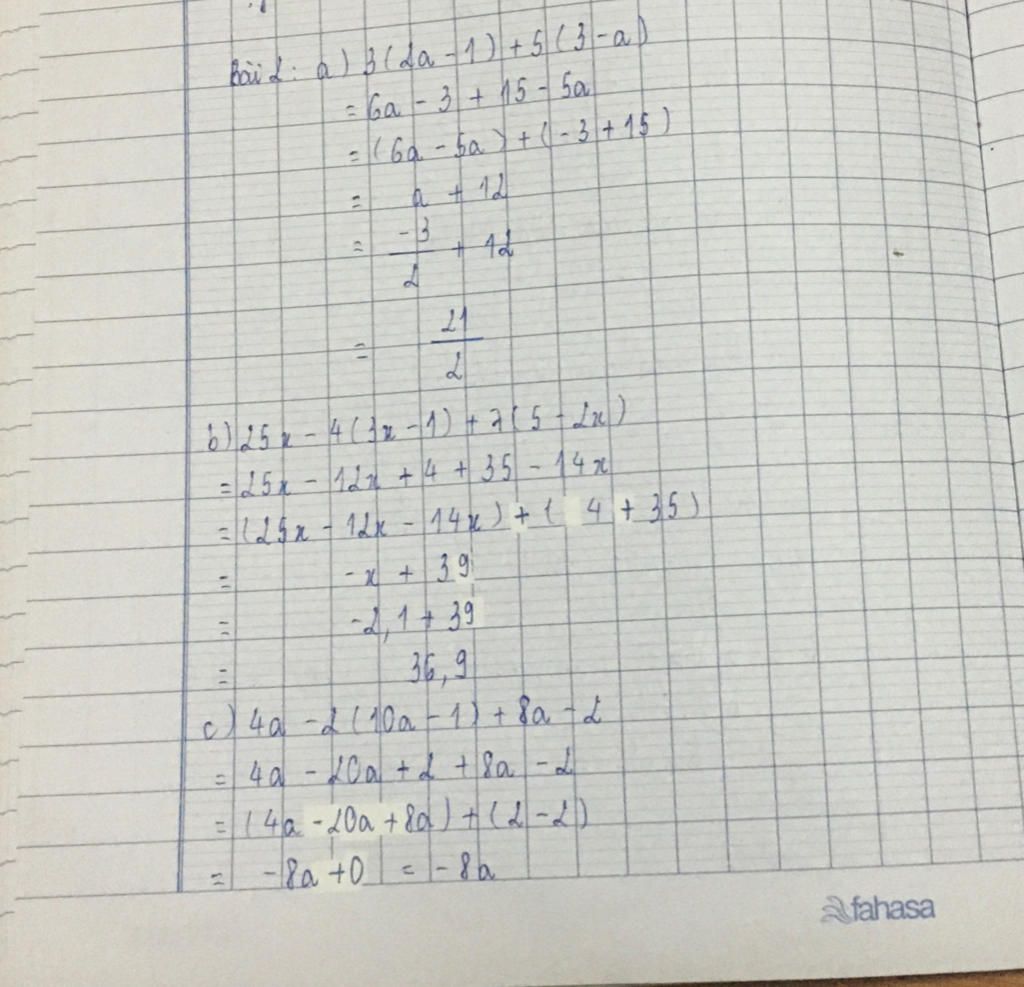 Bài 2: a) 3(2a - 1) + 5(3 - a)
= 6a - 3 + 15 - 5a
= (6a - 5a) + (-3 + 15)
= a + 12
= \frac{-3}{2} + 12
= \frac{21}{2}
b) 25x - 4(3x - 1) + 7(5 - 2x)
= 25x - 12x + 4 + 35 - 14x
= (25x - 12x - 14x) + ( 4 + 35)
= -x + 39
= -2,1 + 39
= 36,9
c) 4a - 2(10a - 1) + 8a - 2
= 4a - 20a + 2 + 8a - 2
= (4a - 20a + 8a) + (2 - 2)
= -8a + 0 = -8a
fahasa